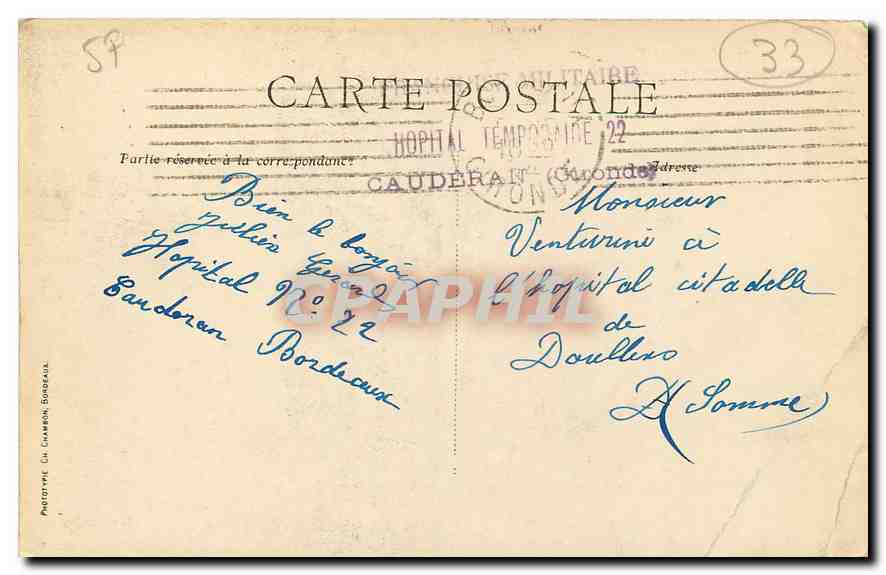 SP
33
CARTE POSTALE
MILITAIRE
HOPITAL TEMPORAIRE 22
CAUDERAN (Gironde)
Partie réservée à la correspondance
Adresse
Bien le bonjour
Hopital No. 22
Cauderan Bordeaux
Monsieur
Venturini à
l'hopital citadelle
de
Doullens
(Somme)
CPAPHIL
PHOTOTYPIE CH. CHAMBON, BORDEAUX